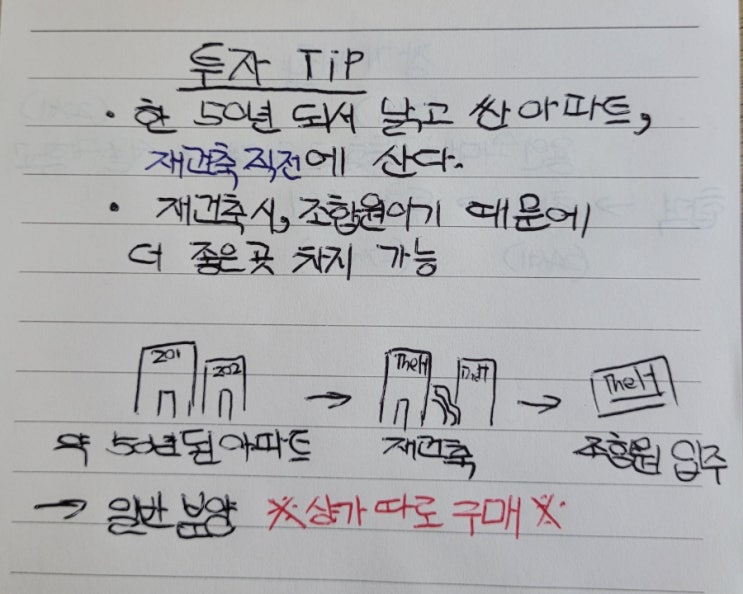 투자 TiP
• 한 50년 되서 낡고 싼 아파트,
재건축 직전에 산다.
• 재건축시, 조합원이기 때문에
더 좋은 곳 차지 가능
201 202 → TheH TheH → TheH
약 50년된 아파트 재건축 조합원 입주
→ 일반 분양 ※상가 따로 구매※